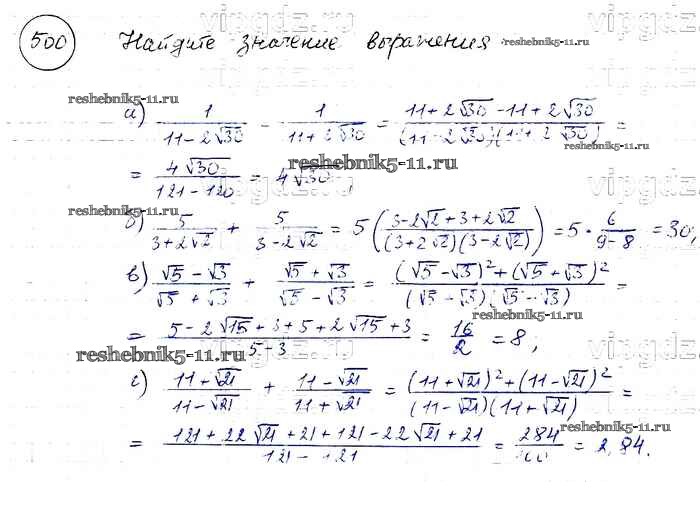 500 Найдите значение выражения reshebnik5-11.ru
vipgdz.ru
reshebnik5-11.ru
а) 1/(11-2√30) - 1/(11+2√30) = (11+2√30-11+2√30)/((11-2√30)(11+2√30)) =
reshebnik5-11.ru
= 4√30/(121-120) = 4√30,
reshebnik5-11.ru
vipgdz.ru
reshebnik5-11.ru
б) 5/(3+2√2) + 5/(3-2√2) = 5((3-2√2+3+2√2)/((3+2√2)(3-2√2))) = 5·6/(9-8) = 30;
в) (√5-√3)/(√5+√3) + (√5+√3)/(√5-√3) = ((√5-√3)²+(√5+√3)²)/((√5-√3)(√5-√3)) =
reshebnik5-11.ru
= (5-2√15+3+5+2√15+3)/(5-3) = 16/2 = 8;
reshebnik5-11.ru
vipgdz.ru
г) (11+√21)/(11-√21) + (11-√21)/(11+√21) = ((11+√21)²+(11-√21)²)/((11-√21)(11+√21)) =
= (121+22√21+21+121-22√21+21)/(121-21) = 284/100 = 2,84.
reshebnik5-11.ru